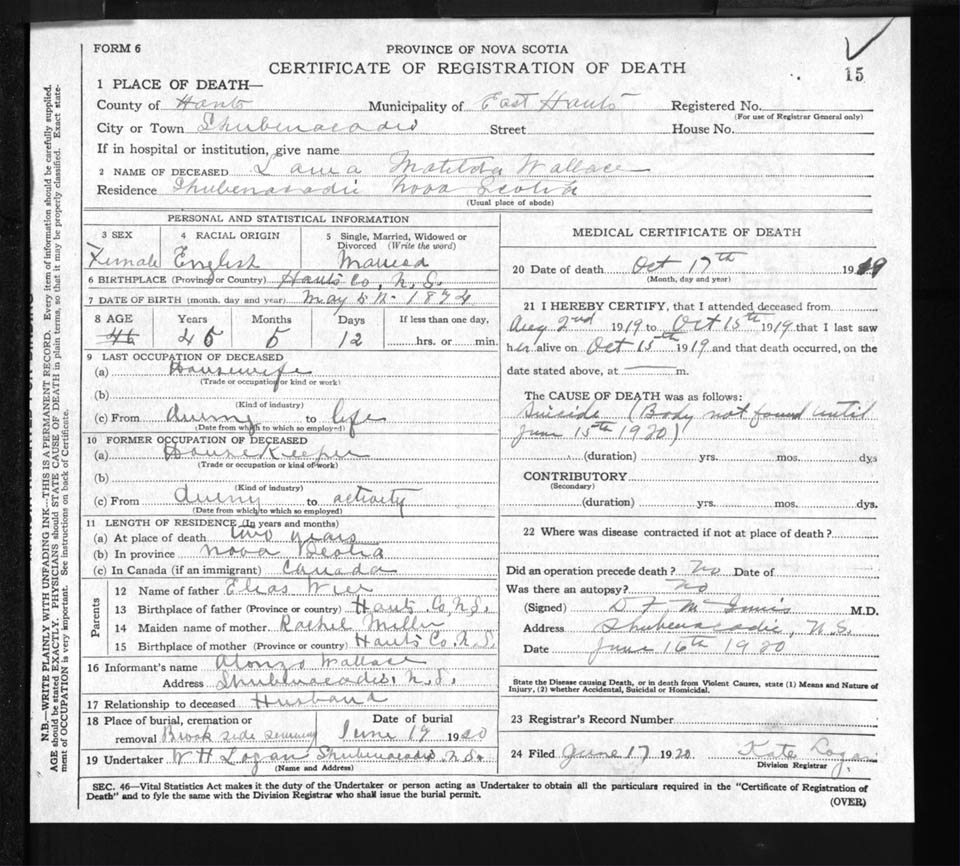 FORM 6
PROVINCE OF NOVA SCOTIA
CERTIFICATE OF REGISTRATION OF DEATH
15
1 PLACE OF DEATH—
County of Hants Municipality of East Hants Registered No.
(For use of Registrar General only)
City or Town Shubenacadie Street House No.
If in hospital or institution, give name
2 NAME OF DECEASED Laura Matilda Wallace
Residence Shubenacadie Nova Scotia
(Usual place of abode)
PERSONAL AND STATISTICAL INFORMATION
3 SEX 4 RACIAL ORIGIN 5 Single, Married, Widowed or
Divorced (Write the word)
Female English Married
6 BIRTHPLACE (Province or Country) Hants Co, N.S.
7 DATE OF BIRTH (month, day and year) May 5th 1874
8 AGE Years Months Days If less than one day,
46 45 5 12 hrs. or min.
9 LAST OCCUPATION OF DECEASED
(a) Housewife
(Trade or occupation or kind or work)
(b)
(Kind of industry)
(c) From during to life
(Date from which to which so employed)
10 FORMER OCCUPATION OF DECEASED
(a) House Keeper
(Trade or occupation or kind of work)
(b)
(Kind of industry)
(c) From during to activity
(Date from which to which so employed)
11 LENGTH OF RESIDENCE (In years and months)
(a) At place of death two years
(b) In province Nova Scotia
(c) In Canada (if an immigrant) Canada
Parents
12 Name of father Elias Wier
13 Birthplace of father (Province or country) Hants Co, N.S.
14 Maiden name of mother Rachel Miller
15 Birthplace of mother (Province or country) Hants Co N.S.
16 Informant's name Alonzo Wallace
Address Shubenacadie, N.S.
17 Relationship to deceased Husband
18 Place of burial, cremation or Date of burial
removal Brook side June 19 1920
19 Undertaker W H Logan Shubenacadie N.S.
(Name and Address)
MEDICAL CERTIFICATE OF DEATH
20 Date of death Oct 17th 1919
(Month, day and year)
21 I HEREBY CERTIFY, that I attended deceased from
Aug 2nd 1919 to Oct 15th 1919 that I last saw
her alive on Oct 15th 1919 and that death occurred, on the
date stated above, at — m.
The CAUSE OF DEATH was as follows:
Suicide (Body not found until
June 15th 1920)
(duration) yrs. mos. dys
CONTRIBUTORY
(Secondary)
(duration) yrs. mos. dys.
22 Where was disease contracted if not at place of death?
Did an operation precede death? No Date of
Was there an autopsy? No
(Signed) D F McInnis M.D.
Address Shubenacadie, N.S.
Date June 16th 1920
State the Disease causing Death, or in death from Violent Causes, state (1) Means and Nature of
Injury, (2) whether Accidental, Suicidal or Homicidal.
23 Registrar's Record Number
24 Filed June 17 1920 Kate Logan
Division Registrar
SEC. 46—Vital Statistics Act makes it the duty of the Undertaker or person acting as Undertaker to obtain all the particulars required in the "Certificate of Registration of
Death" and to fyle the same with the Division Registrar who shall issue the burial permit.
(OVER)
N.B.—WRITE PLAINLY WITH UNFADING INK—THIS IS A PERMANENT RECORD. Every item of information should be carefully supplied.
AGE should be stated EXACTLY. PHYSICIANS should STATE CAUSE OF DEATH in plain terms, so that it may be properly classified. Exact state-
ment of OCCUPATION is very important. See instructions on back of Certificate.